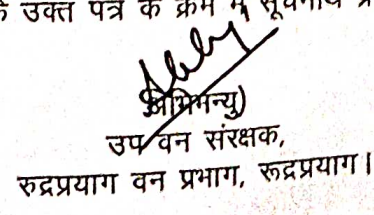 के उक्त पत्र के क्रम में सूचनार्थ प्र
अभिमन्यु)
उप वन संरक्षक,
रुद्रप्रयाग वन प्रभाग, रूद्रप्रयाग।